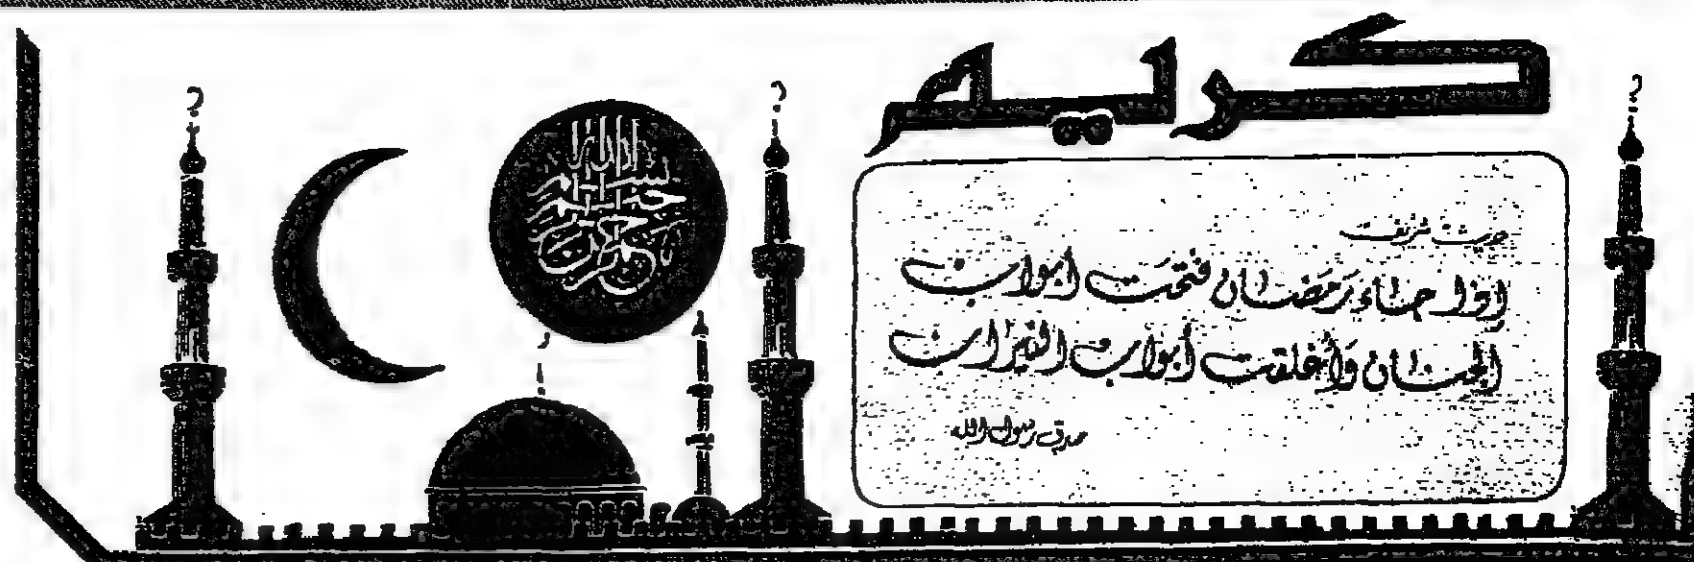 كريم
بسم الله الرحمن الرحيم
حديث شريف
إذا جاء رمضان فتحت أبواب
الجنان وأغلقت أبواب النيران
صدق رسول الله